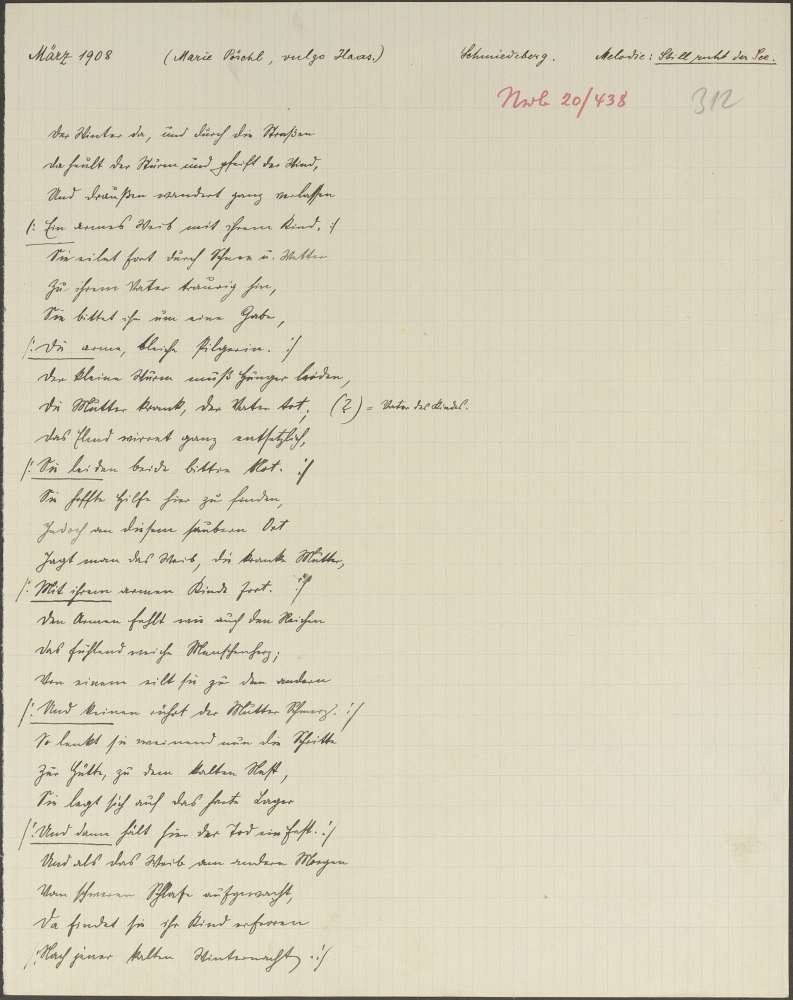 März 1908 (Marie Pöschl, vulgo Haas.) Schmiedeberg. Melodie: Still ruht der See.
Nwb 20/438 312
Der Winter da, und durch die Straßen
da heult der Sturm und pfeift der Wind,
Und draußen wandert ganz verlassen
/: Ein armes Weib mit ihrem Kind. :/
Sie eilet fort durch Schnee u. Wetter
Zu ihrem Vater traurig hin,
Sie bittet ihn um eine Gabe,
/: Die arme, bleiche Pilgerin. :/
Der kleine Wurm muß Hunger leiden,
Die Mutter krank, der Vater tot, (?) = Vater des Kindes.
Das Elend wirret ganz entsetzlich,
/: Sie leiden beide bittre Not. :/
Sie hoffte Hilfe hier zu finden,
Jedoch an diesem saubern Ort
Jagt man das Weib, die kranke Mutter,
/: Mit ihrem armen Kinde fort. :/
Den Armen fehlt wie auch den Reichen
Das fühlend weiche Menschenherz;
Von einem eilt sie zu dem andern
/: Und keinen rührt der Mutter Schmerz. :/
So lenkt sie weinend nun die Schritte
Zur Hütte, zu dem kalten Nest,
Sie legt sich auf das harte Lager
/: Und dann hält hier der Tod ein Fest. :/
Und als das Weib am andern Morgen
Vom schweren Schlafe aufgewacht,
Da findet sie ihr Kind erfroren
/: Nach jener kalten Winternacht. :/